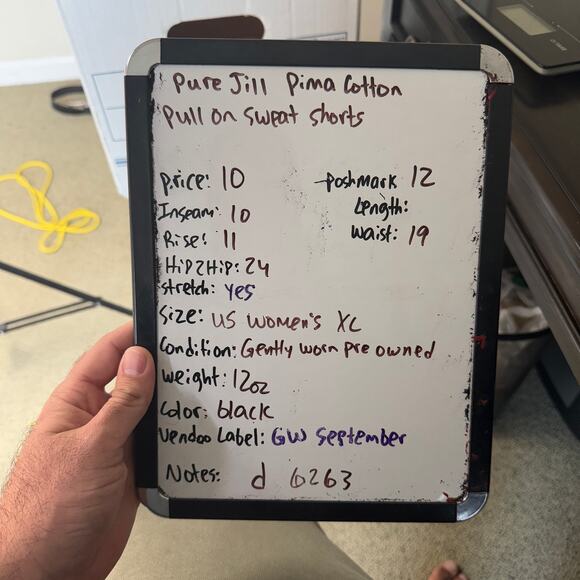 Pure Jill Pima Cotton
Pull on sweat shorts
Price: 10
Poshmark 12
Inseam: 10
Length:
Rise: 11
Waist: 19
Hip2Hip: 24
Stretch: yes
Size: US Women's XL
Condition: Gently worn pre owned
Weight: 12oz
Color: black
Vendoo Label: GW September
Notes: d 6263